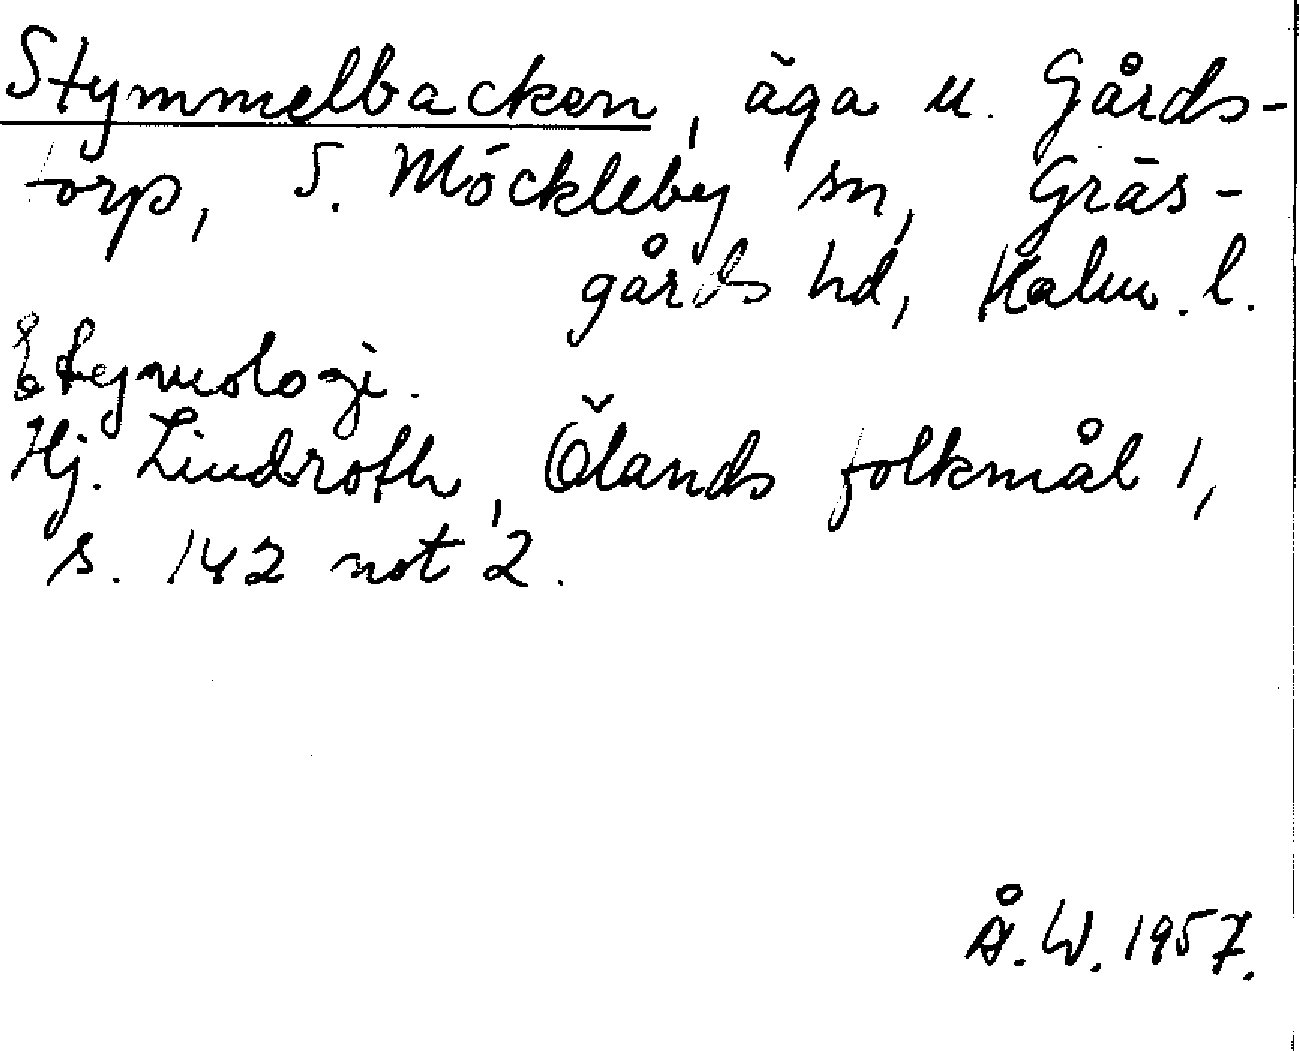 Stymmelbacken, äga u. Gårds-
torp, S. Möckleby sn, Gräs-
gårds hd, Kalm. l.
Etymologi.
Hj. Lindroth, Ölands folkmål 1,
s. 142 not 2.
Å. W. 1957.